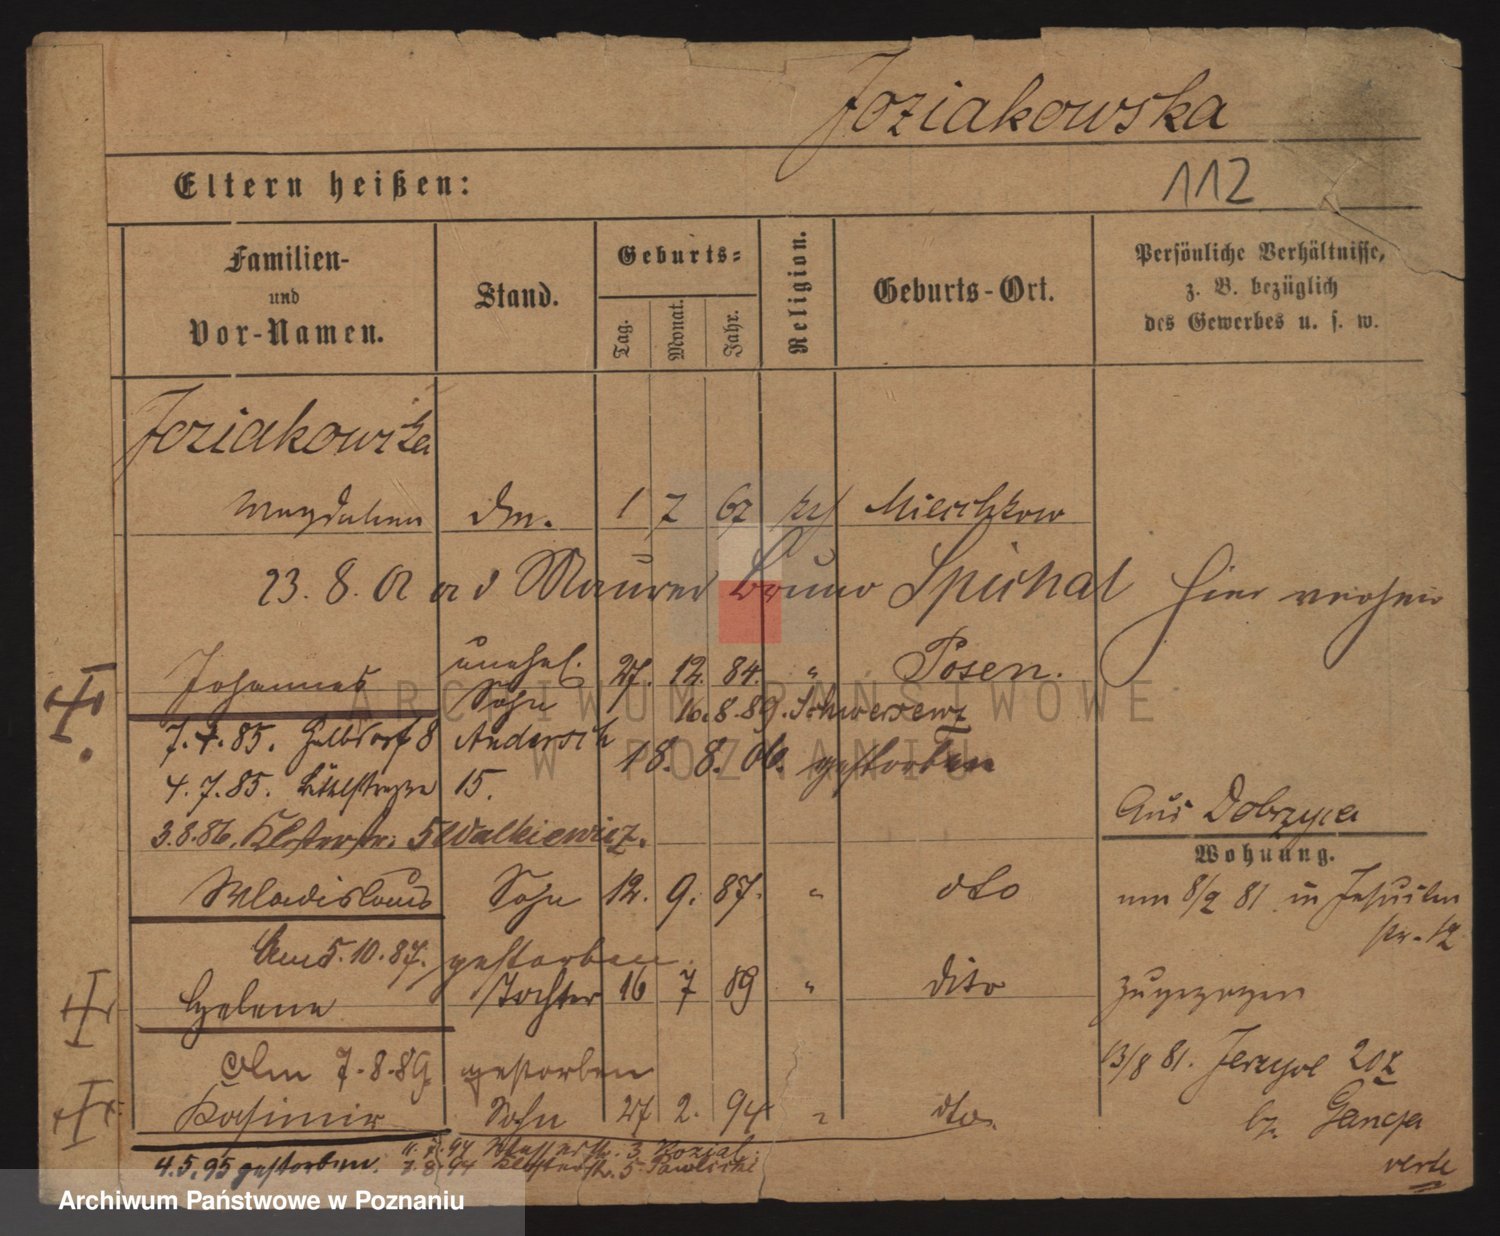 Joziakowska
112
Eltern heißen:
Familien- und Vor-Namen.
Stand.
Geburts-
Tag.
Monat.
Jahr.
Religion.
Geburts-Ort.
Persönliche Verhältnisse, z. B. bezüglich des Gewerbes u. s. w.
Joziakowska
Magdalena dm. 1 7 67 Mieschkow
23. 8. Maurer Bruno Spichal hier
Johannes unehel. Sohn 27. 12. 84. " Posen.
16.8.89. Schwersenz
7.4.85. Halbdorf 8 Andersch
18. 8. 06. gestorben
4.7.85. 15.
3.8.86. Klosterstr. 5 Walkiewicz.
Aus Dobrzyca
Wohnung.
Wladislaus Sohn 12. 9. 87. " dto
um 8/2 81 in Jesuiten
str. 12
Am 5.10.87. gestorben.
Helene Tochter 16 7 89 " dito
zugezogen
Am 7.8.89. gestorben
13/8 81. Jerzyce 207
Kasimir Sohn 27 2. 94 " dto.
bz. Gancza
94 Klosterstr. 3 Kozial.
4.5.95 gestorben. 7.8.94 Klosterstr. 5 Pawlicki
verte
ARCHIWUM PAŃSTWOWE
W POZNANIU
Archiwum Państwowe w Poznaniu